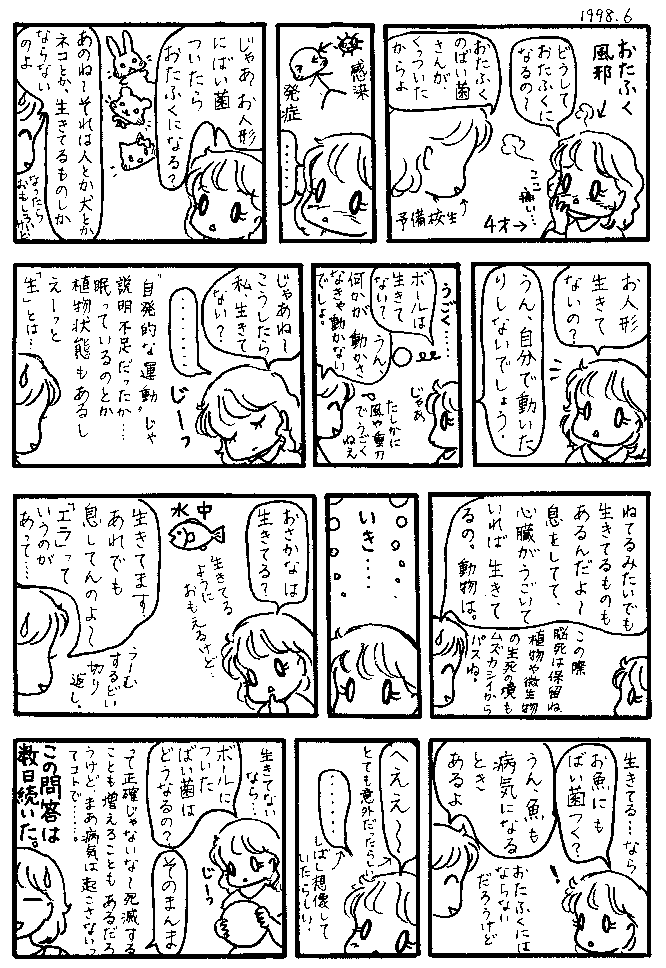 1998.6
おたふく
風邪
どうして
おたふくに
なるの?
おたふく
のばい菌
さんが、
くっついた
からよ
ここ
痛い…
4才→
予備校生
感染
発症
……
じゃあ、お人形
にばい菌
ついたら
おたふくになる?
あのね〜それは人とか犬とか
ネコとか、生きてるものしか
ならない
のよ
なったら
おもしろいけど
お人形
生きて
ないの?
うん、自分で動いた
りしないでしょう。
うごく……
ボールは
生きて
ない?
うん、
何かが動かさ
なきゃ動かない
でしょ。
じゃあ
たしかに
風や重力
でうごく
ねえ
じゃあね〜
こうしたら
私、生きて
ない?
………
じーっ
“自発的な運動”じゃ
説明不足だったか…
眠っているのとか
植物状態もあるし
えーっと
「生」とは…
ねてるみたいでも
生きてるものも
あるんだよ〜
息をしてて、
心臓がうごいて
いれば生きて
るの。動物は。
この際
脳死は保留ね
植物や微生物
の生死の境も
ムズカシイから
パスね。
いき……
おさかなは
生きてる?
水中
生きてる
ように
おもえるけど…
生きてます
あれでも
息してんのよ〜
「エラ」って
いうのが
あって…
うーむ
するどい
切り
返し。
生きてる…なら
お魚にも
ばい菌つく?
うん、魚も
病気になる
とき
あるよ
おたふくには
ならない
だろうけど
!
へええ〜
とても意外だったらしい
………
しばし想像して
いたらしい。
生きてない
なら…
ボールに
ついた
ばい菌は
どうなるの?
じーっ
そのまんま
って正確じゃないな〜死滅する
ことも増えることもあるだろ
うけど、まあ病気は起こさないっ
てコトで……。
この問答は
数日続いた。